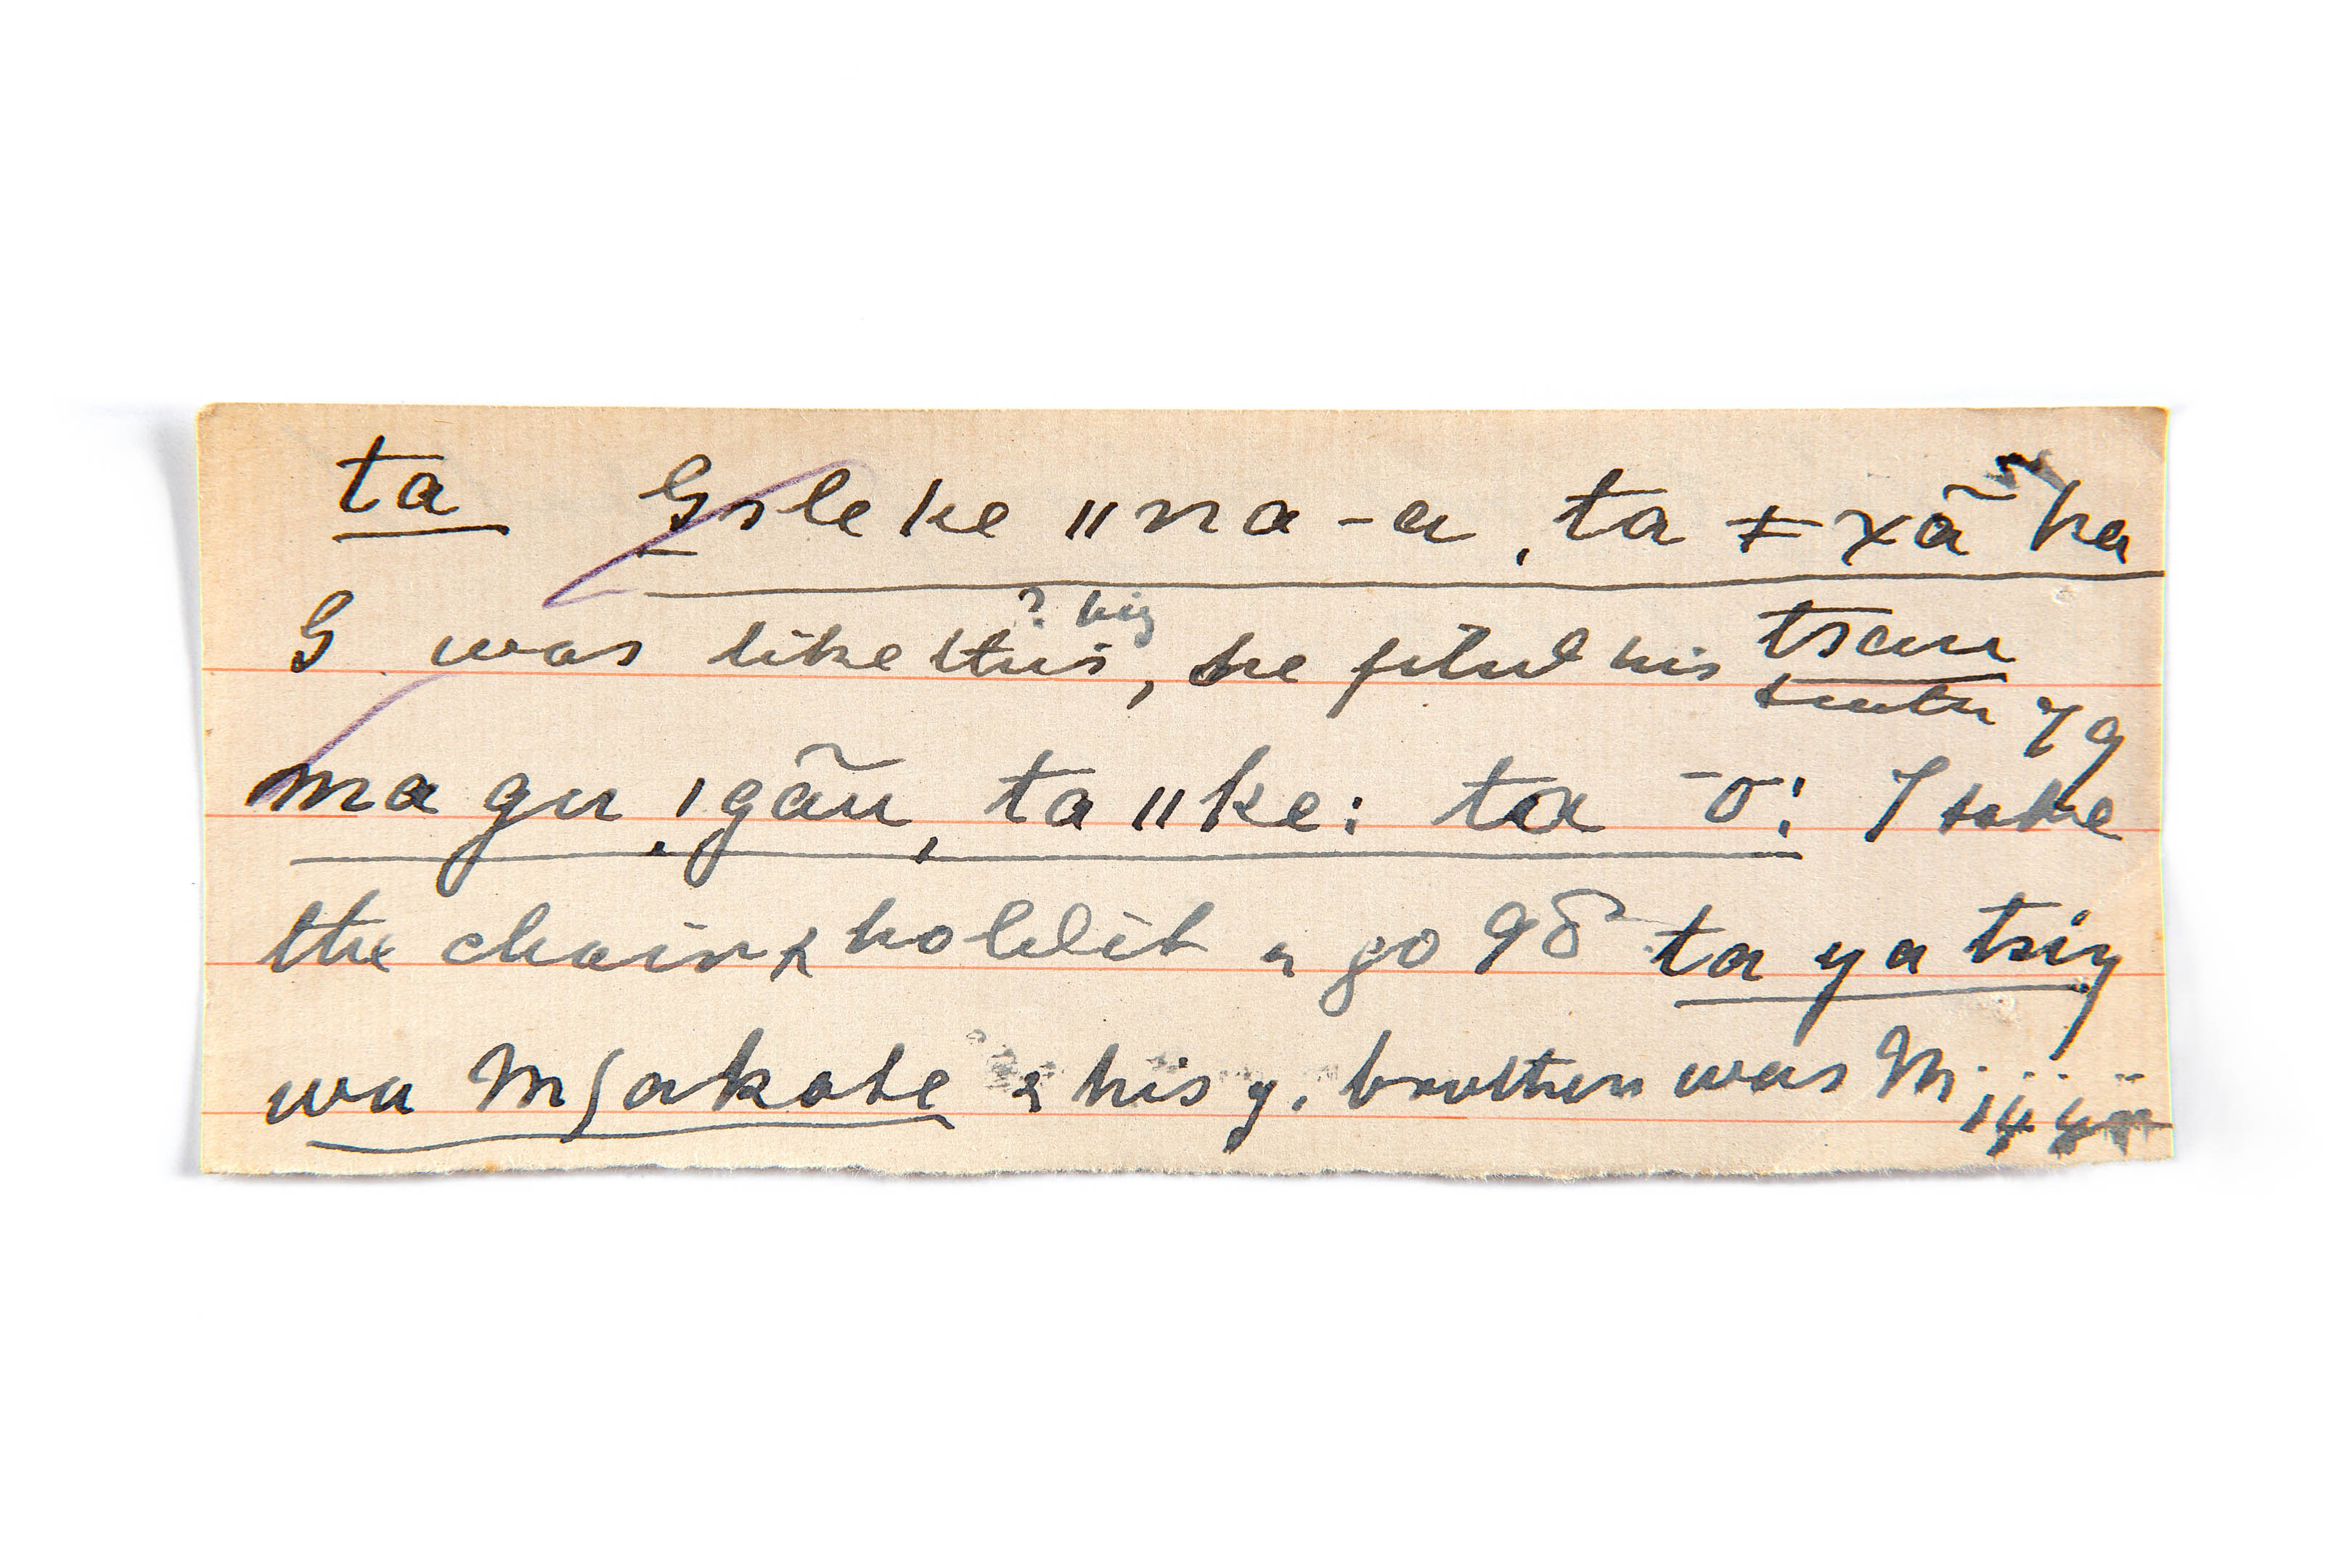 ta Gsleke ǁna-a, ta ǂxã ha
? big
G was like this, he filed his tsau
79
ma gu, ǀgãu, ta ǁke: ta -o: I take
the chair & hold it & go 98 ta ya tsiŋ
wa Mʃakabe & his y. brother was M.